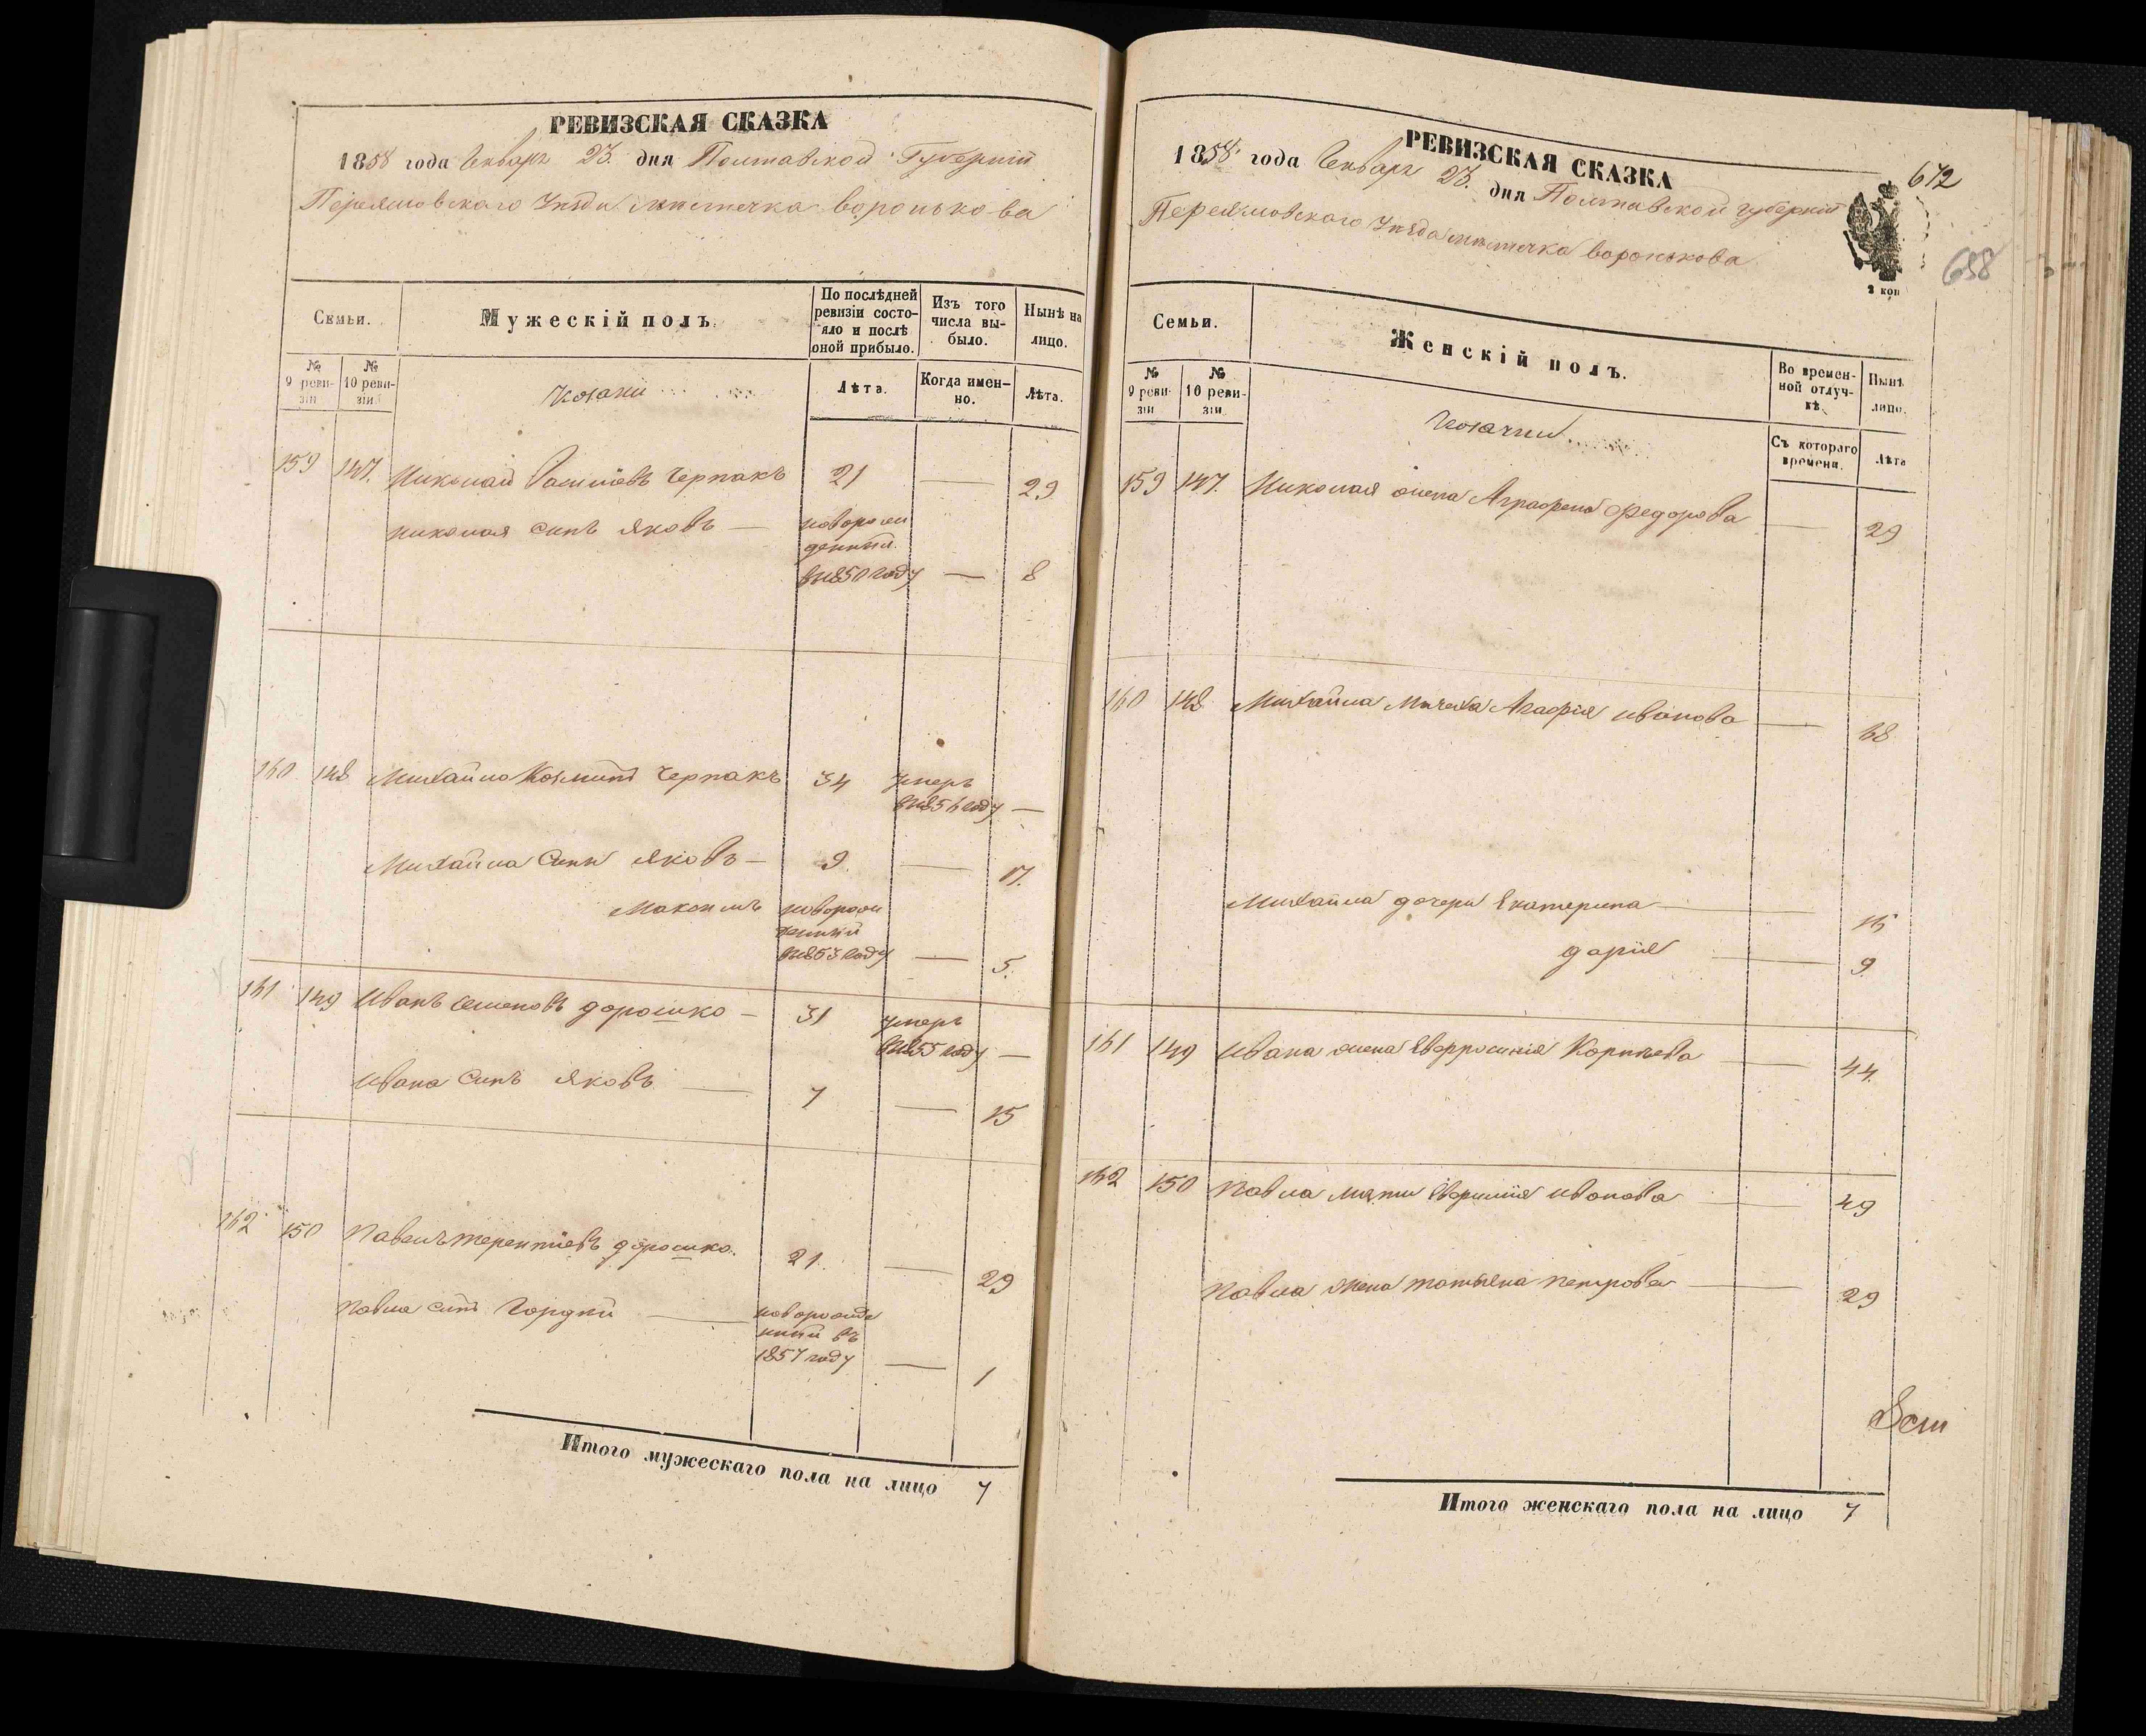 РЕВИЗСКАЯ СКАЗКА
1858 года Генваря 23. дня Полтавской Губерніи
Переяславскаго Уѣзда мѣстечка воронькова
Семьи.
Мужескій полъ.
По послѣдней ревизіи состояло и послѣ оной прибыло.
Изъ того числа выбыло.
Нынѣ на лицо.
№ 9 ревизіи
№ 10 ревизіи.
козаки
Лѣта.
Когда именно.
Лѣта.
159 147. Николай Черпакъ 21 — 29
николая синъ яковъ — новорожденный въ 1850 году — 8
160 148 Михайло Козминъ Черпакъ 34 умеръ въ 1856 году —
Михайла Синъ яковъ — 9. — 17.
Максимъ новорожденный въ 1853 году — 5.
161 149 Иванъ семеновъ дорошко — 31 умеръ въ 1855 году —
Ивана Синъ яковъ — 7 — 15
162 150 Павелъ терентіевъ дорошко. 21. — 29
Павла синъ Гордѣй — новорожденный въ 1857 году — 1
Итого мужескаго пола на лицо 7
РЕВИЗСКАЯ СКАЗКА
672
1858 года Генваря 23. дня Полтавской губерніи
Переяславскаго Уѣзда мѣстечка воронькова
2 коп
658
Семьи.
Женскій полъ.
Во временной отлучкѣ.
Нынѣ лицо.
№ 9 ревизіи
№ 10 ревизіи
козачки
Съ котораго времени.
Лѣта
159 147. Николая жена Аграфена Федорова — 29
160 148 Михайла Мачеха Агафія иванова — 68
Михайла дочери Екатерина — 15
дарія — 9
161 149 Ивана жена Евфросинія Корнѣева — 44.
162 150 Павла мати Евфимія иванова — 49
Павла жена татьяна петрова — 29
Итого женскаго пола на лицо 7